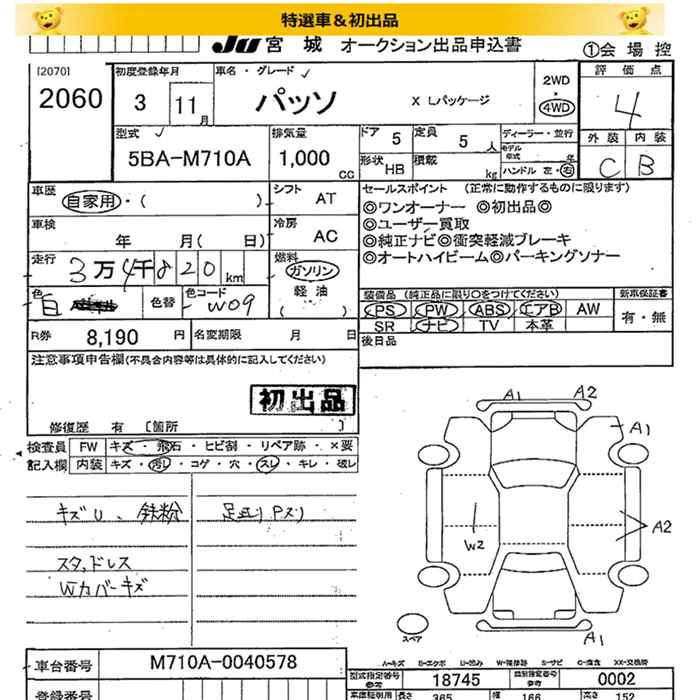 特選車＆初出品
JU 宮 城 オークション出品申込書
①会 場 控
[2070]
2060
初度登録年月
3 11月
車名・グレード
パッソ X Lパッケージ
2WD
・
4WD
評 価 点
4
外 装 内 装
C B
型式
5BA-M710A
排気量
1,000 CC
ドア 5
定員 5 人
形状 HB
積載 kg
ディーラー・並行
モデル年式 年
ハンドル 左・右
車歴
自家用・( )
シフト AT
車検
年 月( 日)
冷房 AC
走行
3万4千820 km
燃料
ガソリン
軽 油
( )
色 白
色替
色コード W09
R券 8,190 円
名変期限 月 日
セールスポイント (正常に動作するものに限ります)
◎ワンオーナー ◎初出品◎
◎ユーザー買取
◎純正ナビ◎衝突軽減ブレーキ
◎オートハイビーム◎パーキングソナー
装備品 (純正品に限り○をつけてください)
PS PW ABS エアB AW
SR ナビ TV 本革
新車保証書
有・無
後日品
注意事項申告欄(不具合内容等は具体的に記入してください)
初出品
修復歴 有 [箇所 ]
検査員 FW キズ・飛石・ヒビ割・リペア跡・×要
記入欄 内装 キズ・汚レ・コゲ・穴・スレ・キレ・破レ
キズU、鉄粉
足廻りPスリ
スタッドレス
Wカバーキズ
A1 A2
A1
A2
W2
A1
スペア
A-キズ E-エクボ U-凹み W-補修跡 S-サビ C-腐食 XX-交換跡
車台番号 M710A-0040578
登録番号
型式指定番号 参考 18745
類別指定番号 参考 0002
長さ 365 幅 166 高さ 152